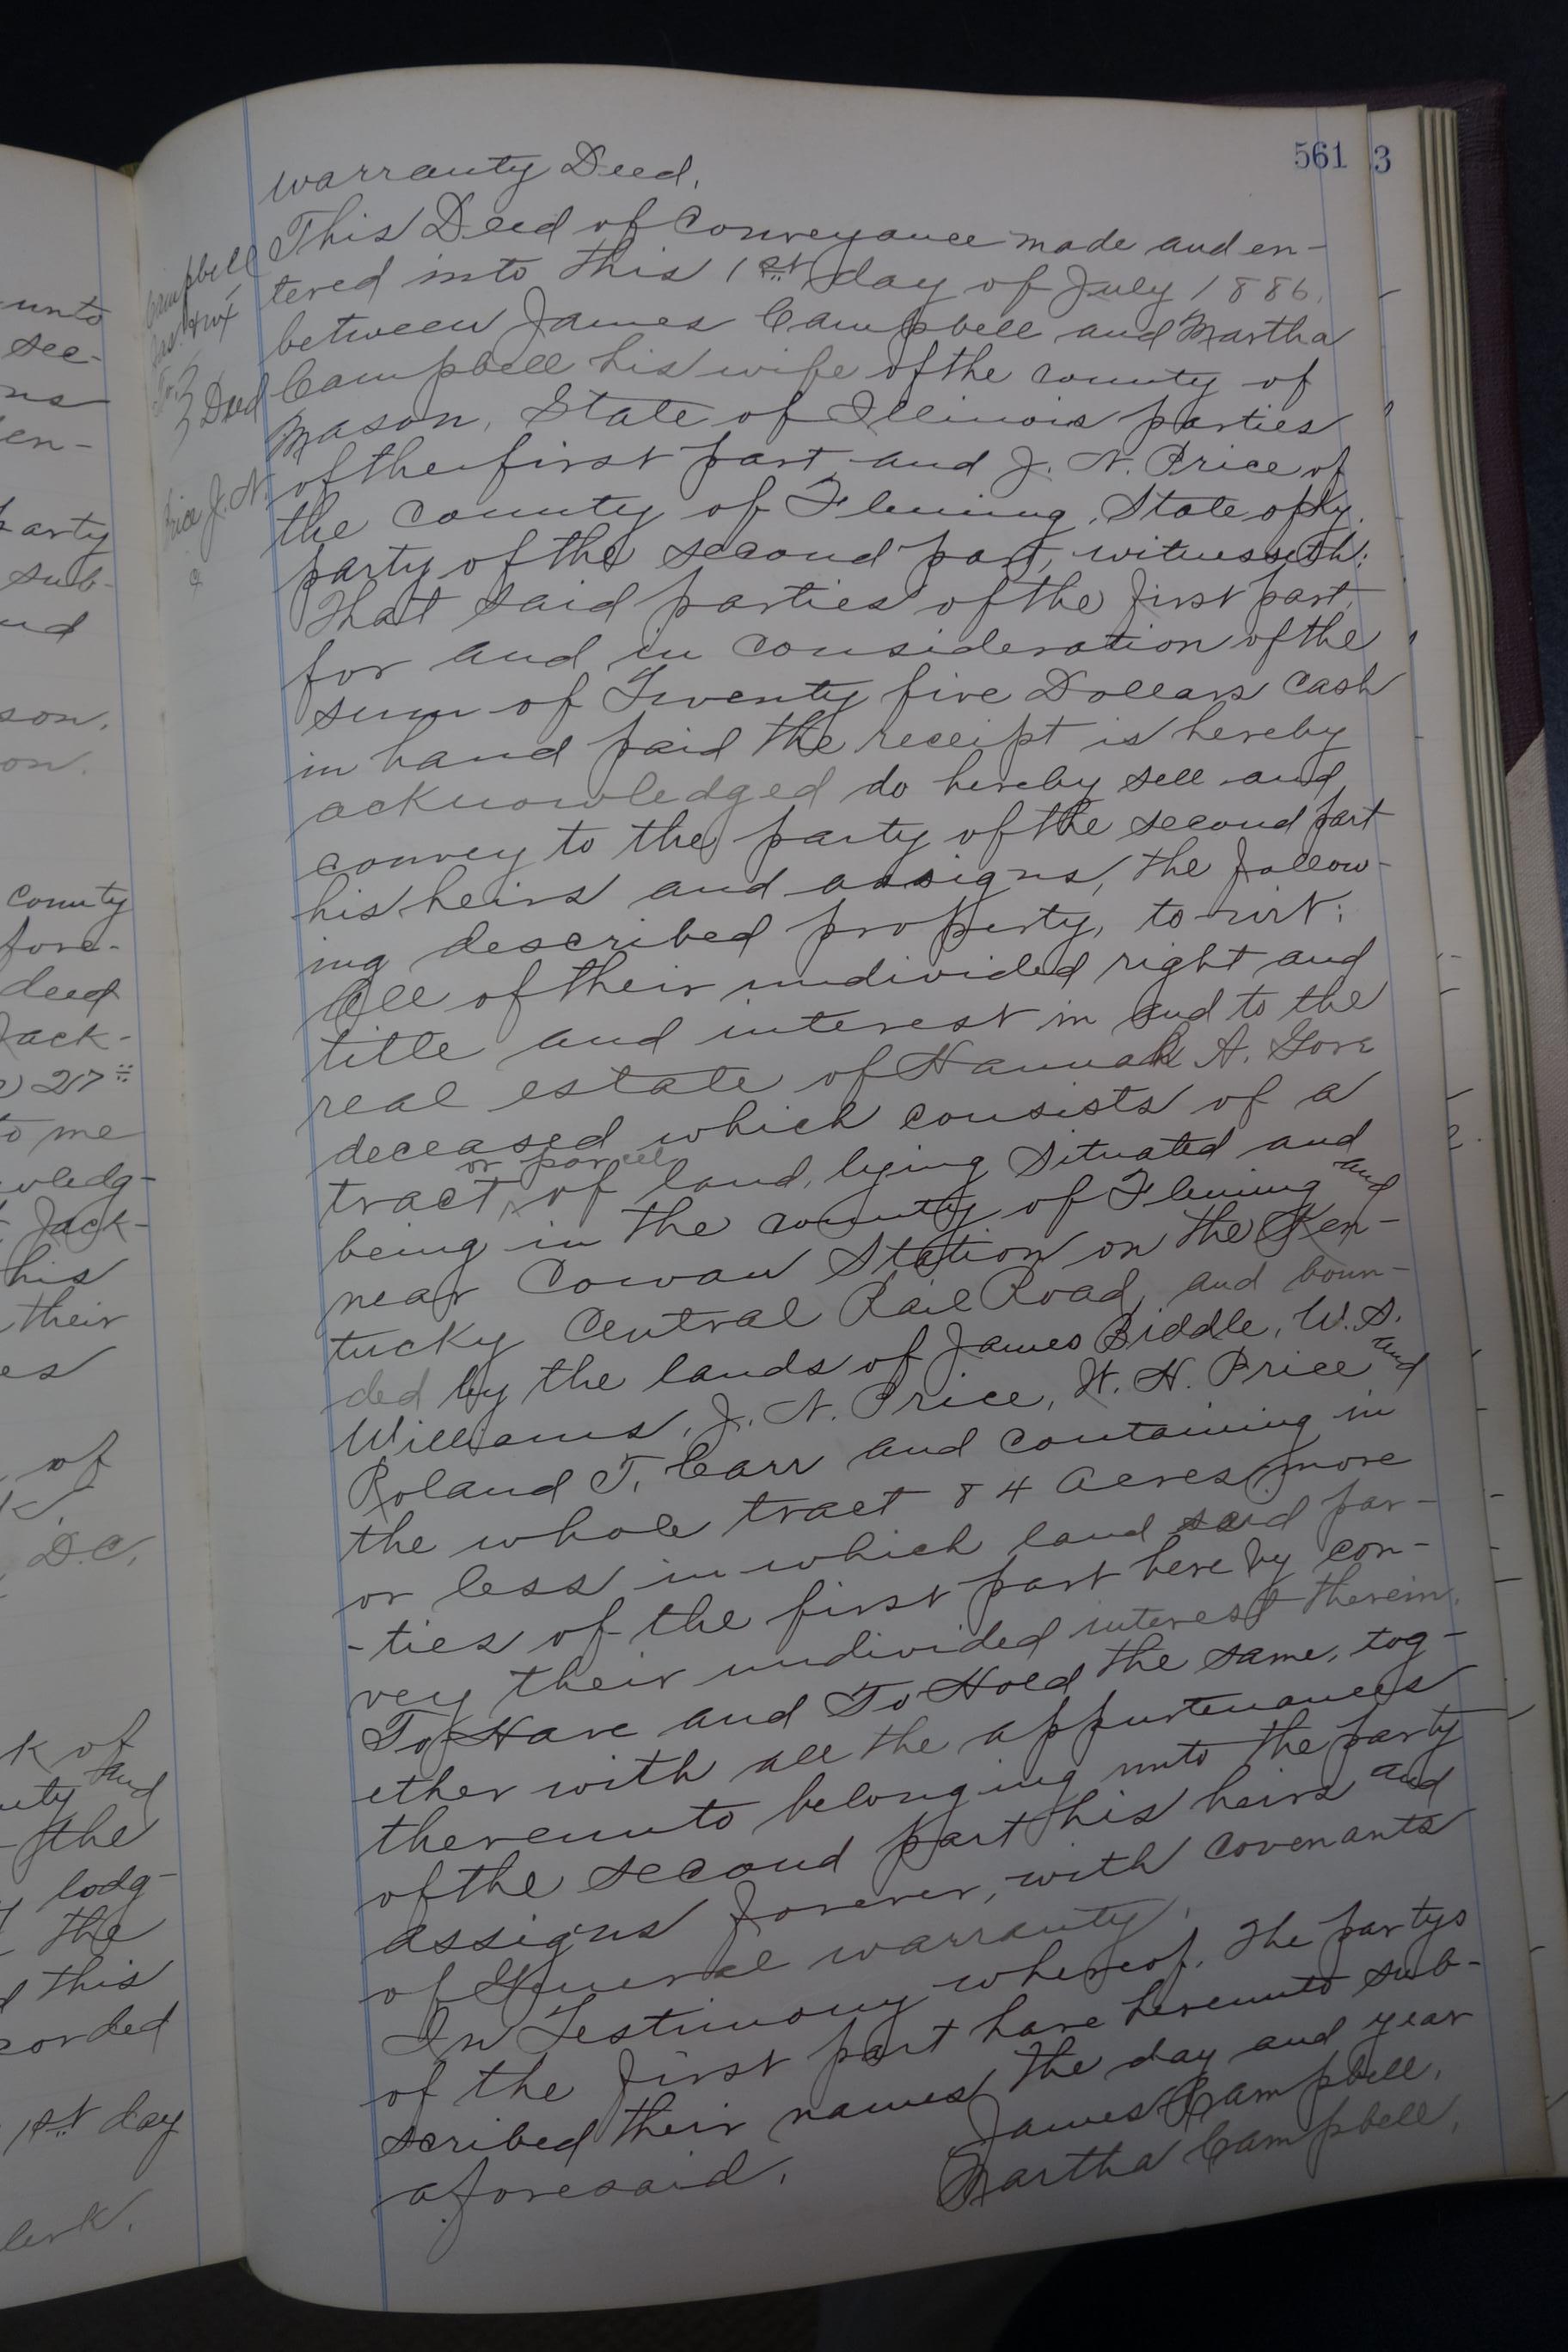 unto
see-
ns
en-
party
sub-
ud
son.
on.
county
fore-
deed
Jack-
217
to me
wledg-
Jack-
his
their
es
of
D.C.
k of
and
uty
the
lodg-
the
this
corded
1st day
lerk.
561
3
Campbell
Jas & wf
To } Deed
Price J. N.
Warranty Deed.
This Deed of Conveyance made and en-
tered into this 1st day of July 1886.
between James Campbell and Martha
Campbell his wife of the county of
Mason, State of Illinois parties
of the first part and J. N. Price of
the county of Fleming, State of Ky.
party of the second part, witnesseth:
That said parties of the first part,
for and in consideration of the
sum of Twenty five Dollars cash
in hand paid the receipt is hereby
acknowledged do hereby sell and
convey to the party of the second part
his heirs and assigns, the follow-
ing described property, to-wit:
All of their undivided right and
title and interest in and to the
real estate of Hannah A. Gore
deceased which consists of a
or parcel
tract of land, lying situated and
being in the county of Fleming and
near Cowan Station on the Ken-
tucky Central Rail Road, and boun-
ded by the lands of James Biddle, W. S.
Williams, J. N. Price, W. H. Price and
Roland T. Carr and containing in
the whole tract 84 acres more
or less in which land said par-
-ties of the first part hereby con-
vey their undivided interest therein.
To Have and To Hold the same, tog-
ether with all the appurtenances
thereunto belonging unto the party
of the second part his heirs and
assigns forever, with covenants
of General warranty.
In Testimony whereof, The partys
of the first part have hereunto sub-
scribed their names the day and year
aforesaid. James Campbell.
Martha Campbell.